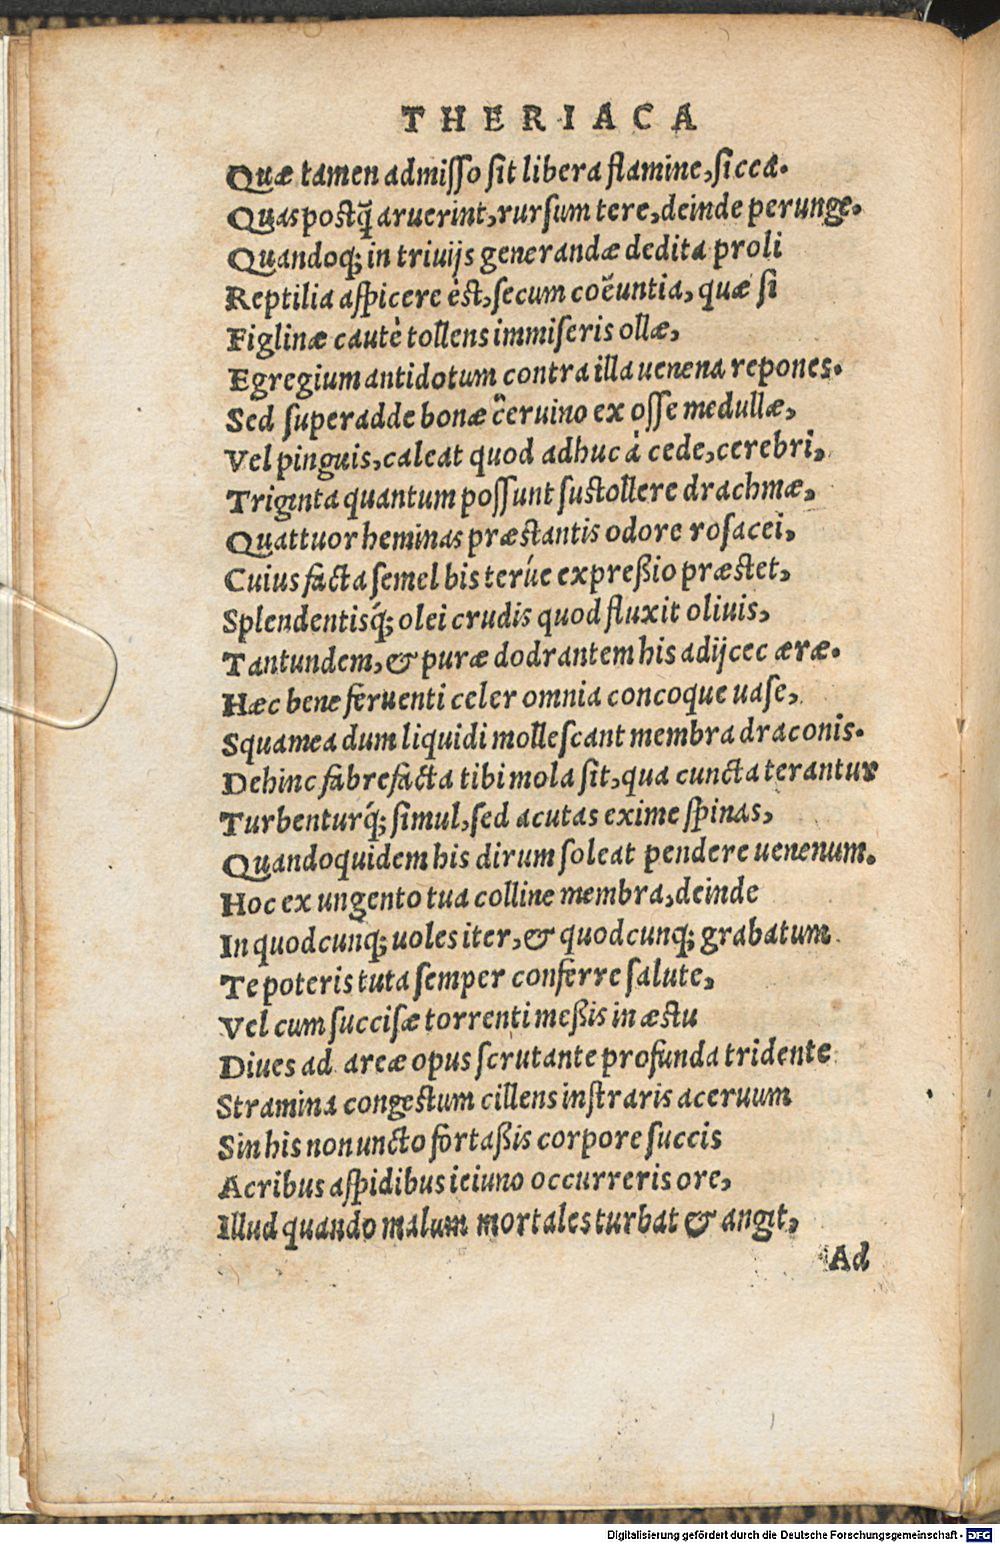 THERIACA
Quæ tamen admiſſo ſit libera flamine, ſicca.
Quas postq̃ aruerint, rurſum tere, deinde perunge.
Quandoq; in triuijs generandæ dedita proli
Reptilia aſpicere èst, ſecum coëuntia, quæ ſi
Figlinæ cautè tollens immiſeris ollæ,
Egregium antidotum contra illa uenena repones.
Sed ſuperadde bonæ ceruino ex oſſe medullæ,
Vel pinguis, caleat quod adhuc à cede, cerebri,
Triginta quantum poſſunt ſustollere drachmæ,
Quattuor heminas præstantis odore roſacei,
Cuius facta ſemel bis terúe expreßio præstet,
Splendentisq́; olei crudis quod fluxit oliuis,
Tantundem, & puræ dodrantem his adijcec æræ.
Hæc bene feruenti celer omnia concoque uaſe,
Squamea dum liquidi molleſcant membra draconis.
Dehinc fabrefacta tibi mola ſit, qua cuncta terantur
Turbenturq́; ſimul, ſed acutas exime ſpinas,
Quandoquidem his dirum ſoleat pendere uenenum.
Hoc ex ungento tua colline membra, deinde
In quodcunq; uoles iter, & quodcunq; grabatum
Te poteris tuta ſemper conferre ſalute,
Vel cum ſucciſæ torrenti meßis in æstu
Diues ad areæ opus ſcrutante profunda tridente
Stramina congestum cillens inſtraris aceruum
Sin his non uncto fortaßis corpore ſuccis
Acribus aſpidibus ieiuno occurreris ore,
Illud quando malum mortales turbat & angit,
Ad
Digitalisierung gefördert durch die Deutsche Forschungsgemeinschaft - DFG